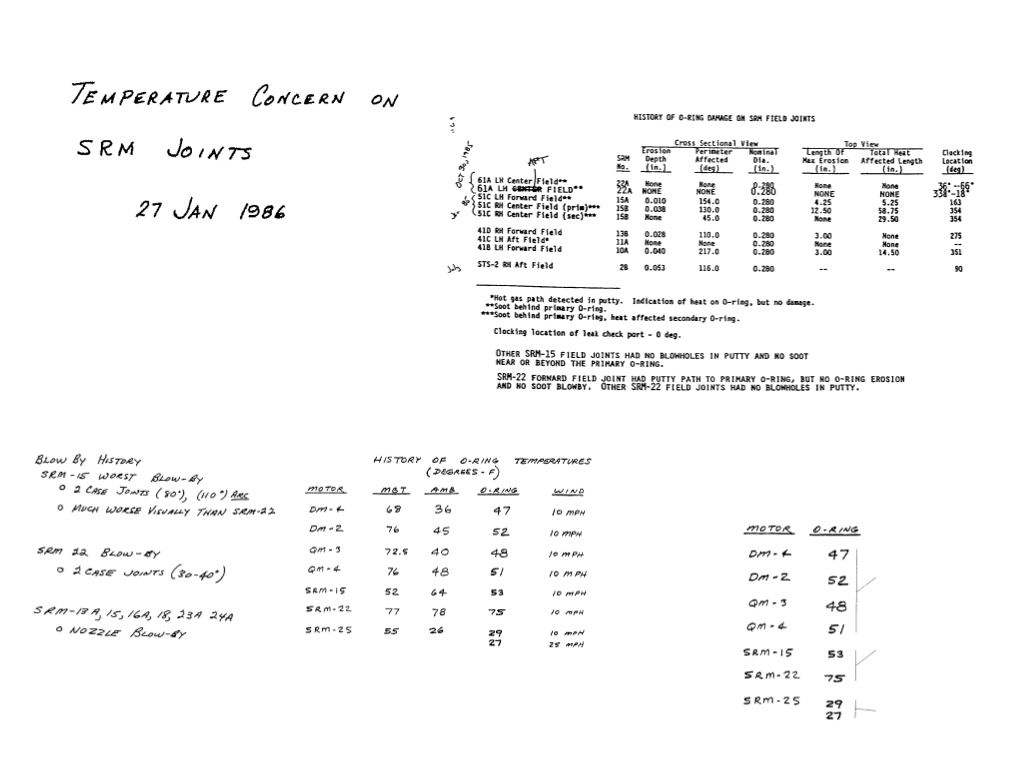 TEMPERATURE CONCERN ON
SRM JOINTS
27 JAN 1986
HISTORY OF O-RING DAMAGE ON SRM FIELD JOINTS
Cross Sectional View Top View
SRM No. Erosion Depth (in.) Perimeter Affected (deg) Nominal Dia. (in.) Length Of Max Erosion (in.) Total Heat Affected Length (in.) Clocking Location (deg)
OCT 30, 1985
AFT
61A LH Center Field** 22A None None 0.280 None None 36°--66°
61A LH CENTER FIELD** 22A NONE NONE 0.280 NONE NONE 338°-18°
51C LH Forward Field** 15A 0.010 154.0 0.280 4.25 5.25 163
51C RH Center Field (prim)*** 15B 0.038 130.0 0.280 12.50 58.75 354
51C RH Center Field (sec)*** 15B None 45.0 0.280 None 29.50 354
41D RH Forward Field 13B 0.028 110.0 0.280 3.00 None 275
41C LH Aft Field* 11A None None 0.280 None None --
41B LH Forward Field 10A 0.040 217.0 0.280 3.00 14.50 351
STS-2 RH Aft Field 2B 0.053 116.0 0.280 -- -- 90
*Hot gas path detected in putty. Indication of heat on O-ring, but no damage.
**Soot behind primary O-ring.
***Soot behind primary O-ring, heat affected secondary O-ring.
Clocking location of leak check port - 0 deg.
OTHER SRM-15 FIELD JOINTS HAD NO BLOWHOLES IN PUTTY AND NO SOOT
NEAR OR BEYOND THE PRIMARY O-RING.
SRM-22 FORWARD FIELD JOINT HAD PUTTY PATH TO PRIMARY O-RING, BUT NO O-RING EROSION
AND NO SOOT BLOWBY. OTHER SRM-22 FIELD JOINTS HAD NO BLOWHOLES IN PUTTY.
BLOW BY HISTORY
SRM-15 WORST BLOW-BY
o 2 CASE JOINTS (80°), (110°) ARC
o MUCH WORSE VISUALLY THAN SRM-22
SRM 22 BLOW-BY
o 2 CASE JOINTS (30-40°)
SRM-13A, 15, 16A, 18, 23A 24A
o NOZZLE BLOW-BY
HISTORY OF O-RING TEMPERATURES
(DEGREES-F)
MOTOR MBT AMB O-RING WIND
DM-4 68 36 47 10 MPH
DM-2 76 45 52 10 MPH
QM-3 72.5 40 48 10 MPH
QM-4 76 48 51 10 MPH
SRM-15 52 64 53 10 MPH
SRM-22 77 78 75 10 MPH
SRM-25 55 26 29 10 MPH
27 25 MPH
MOTOR O-RING
DM-4 47
DM-2 52
QM-3 48
QM-4 51
SRM-15 53
SRM-22 75
SRM-25 29
27